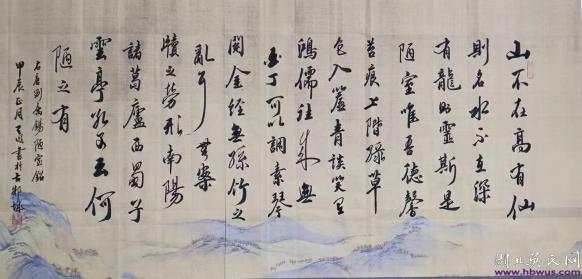 山不在高有仙
則名水不在深
有龍則靈斯是
陋室唯吾德馨
苔痕上階綠草
色入簾青談笑有
鴻儒往來無
白丁可以調素琴
閱金經無絲竹之
亂耳無案
牘之勞形南陽
諸葛廬西蜀子
雲亭孔子云何
陋之有
右唐劉禹錫陋室銘
甲辰正月書於古
湖北吴氏网
www.hbwus.com